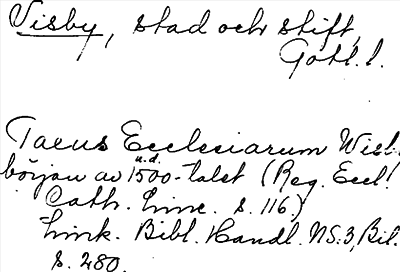 Visby, stad och stift,
Gotl. l.
Taxus Ecclesiarum Wisb.
början av u.d. 1500-talet (Reg. Eccl.
Cath. Linc. s. 116.)
Link. Bibl. Handl. NS. 3, Bil.
s. 280.